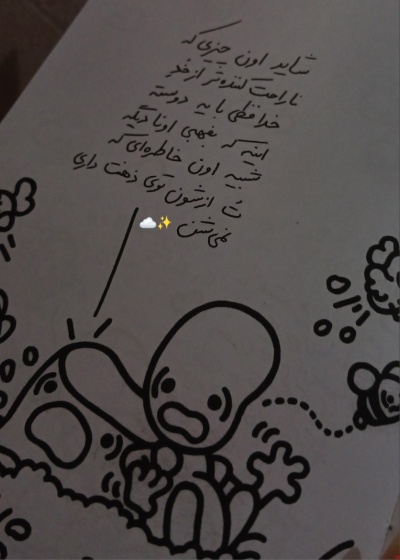 شاید اون چیزی که
ناراحت کننده‌تر از خدِ
خدافظی با یه دوسته
اینه که بفهمی اونا دیگه
شبیه اون خاطره‌ای که
تُ ازشون توی ذهنت داری
نمی‌شن